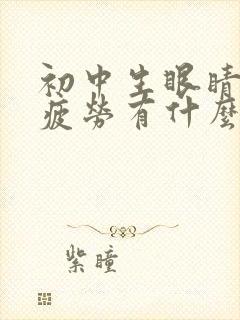 初中生眼睛
疲勞有什麼
紫瞳